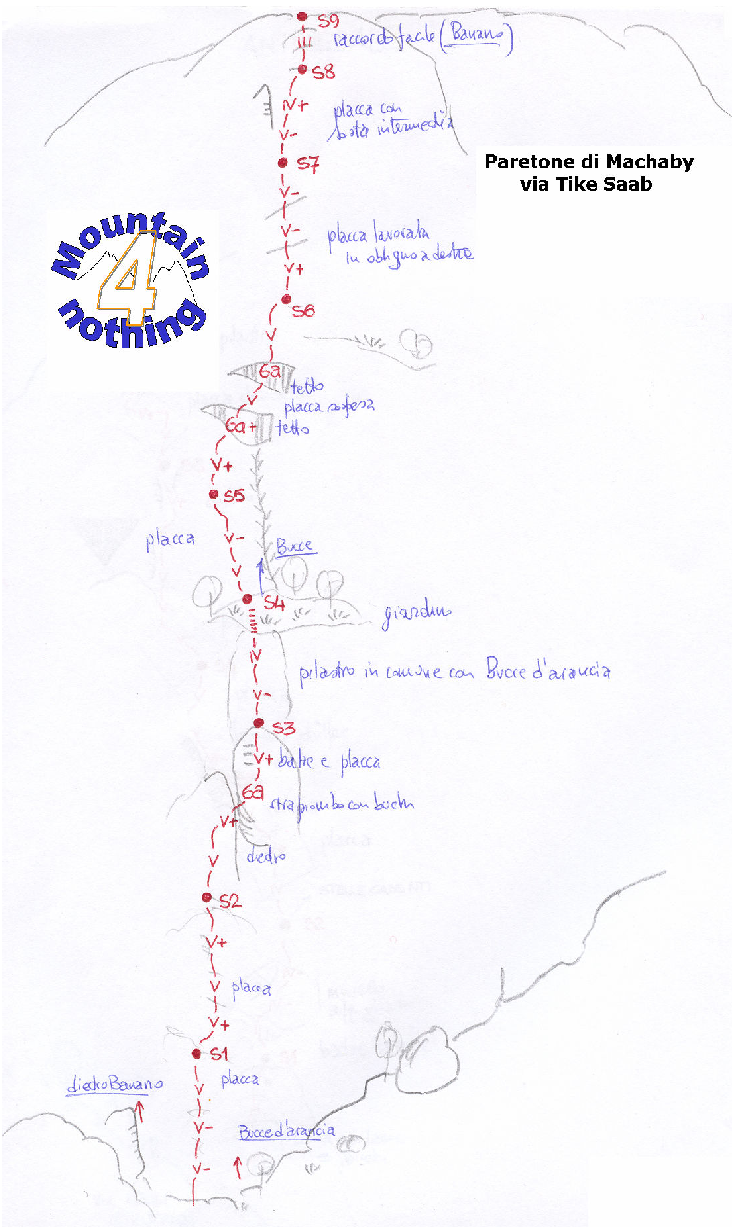 S9
raccordo facile (Banano)
S8
V+
placca con
sosta intermedia
V-
S7
Paretone di Machaby
via Tike Saab
V-
V-
placca lavorata
in obliquo a destra
V+
S6
Mountain
4
nothing
V
6a
tetto
V
placca sospesa
6a+
tetto
V+
S5
placca
V-
Bucce
V
S4
giardino
V
pilastro in comune con Bucce d'arancia
V-
S3
V+
balze e placca
6a
strapiombo con buchi
V+
diedro
V
S2
V+
V
placca
V+
S1
placca
diedro Banano
V
V-
Bucce d'arancia
V-